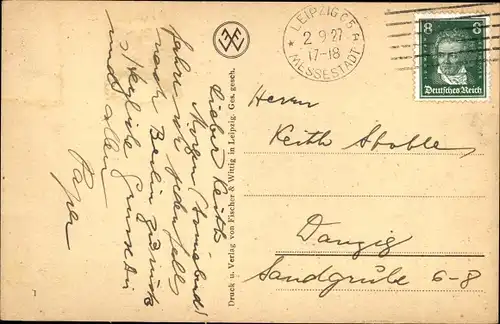 Lieber Keith
Morgen (Sonnabend)
fahren wir jedenfalls
nach Berlin zurück
Herzliche Grüsse Dir
und allen
Papa
Druck u. Verlag von Fischer & Wittig in Leipzig. Ges. gesch.
LEIPZIG C5
2.9.27
17-18
* MESSESTADT
8 8
Deutsches Reich
Herrn
Keith
Danzig
Sandgrube 6-8